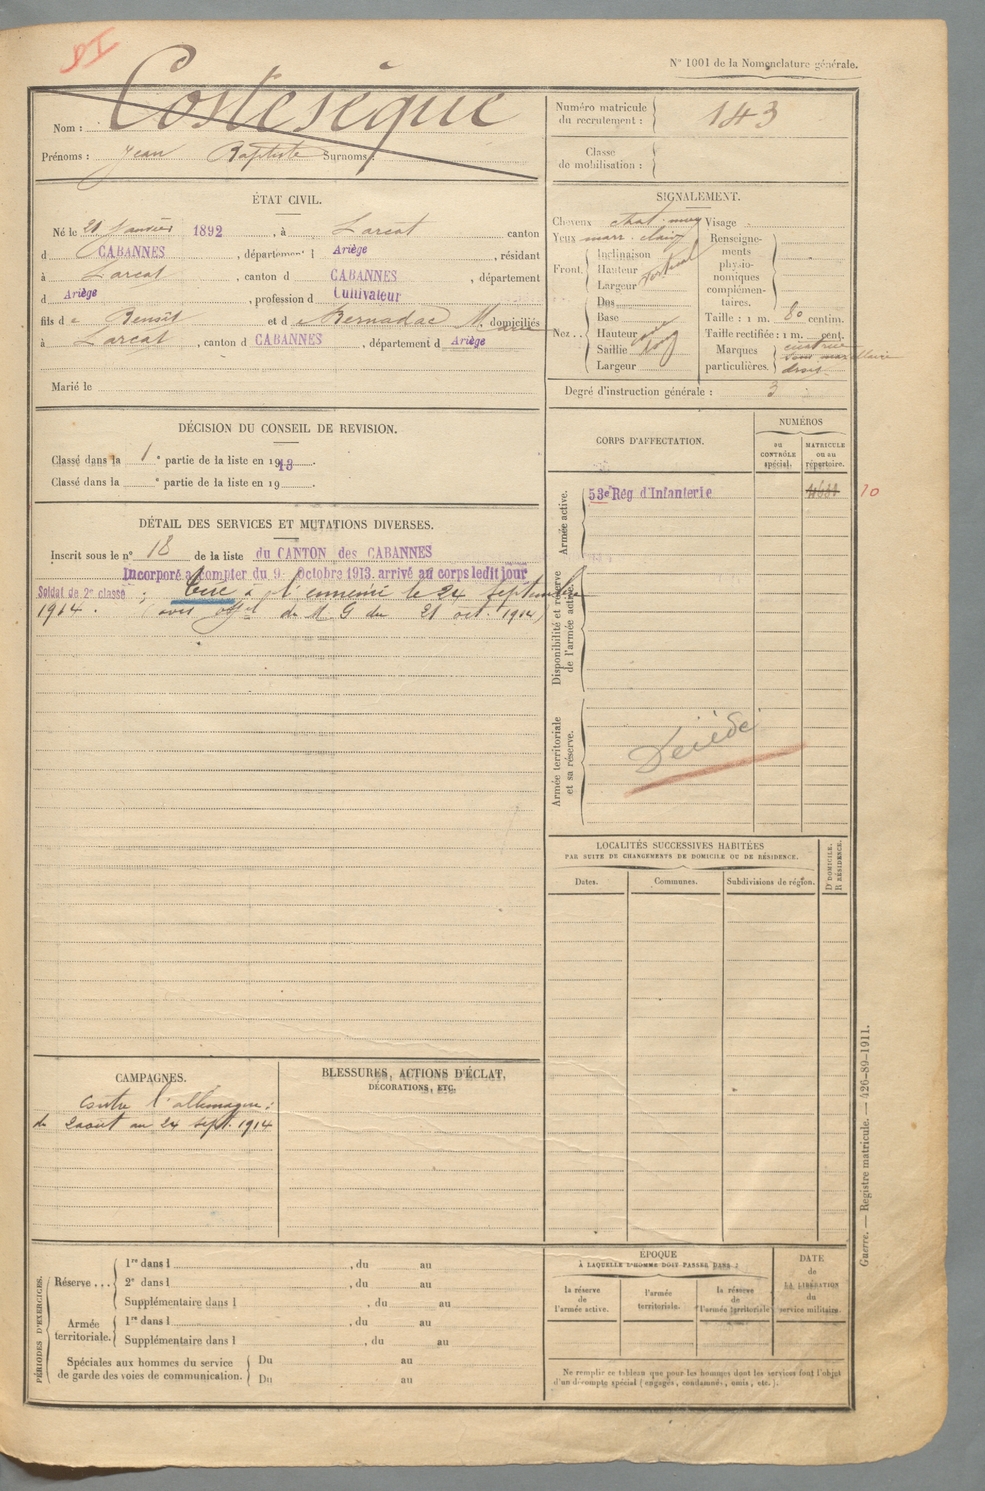 N° 1001 de la Nomenclature générale.
Nom : Costesèque
Prénoms : Jean Baptiste Surnoms :
Numéro matricule du recrutement : 143
Classe de mobilisation :
ÉTAT CIVIL.
Né le 21 Janvier 1892, à Larcat canton
d CABANNES, département d Ariège, résidant
à Larcat, canton d CABANNES, département
d Ariège, profession d Cultivateur
fils de Benoît et de Bernadac Marie domiciliés
à Larcat, canton d CABANNES, département d Ariège
Marié le
SIGNALEMENT.
Cheveux chat. moy Visage
Yeux marr. clair
Front. Inclinaison
Hauteur
Largeur
vertical
Nez. Dos
Base
Hauteur
Saillie
Largeur
long
Renseignements physionomiques complémentaires.
Taille : 1 m. 80 centim.
Taille rectifiée : 1 m. cent.
Marques particulières. cicatrice sous maxillaire droit
Degré d'instruction générale : 3
DÉCISION DU CONSEIL DE REVISION.
Classé dans la 1e partie de la liste en 1913.
Classé dans la e partie de la liste en 19 .
CORPS D'AFFECTATION.
NUMÉROS
au CONTRÔLE spécial.
MATRICULE ou au répertoire.
Armée active.
53e Rég d'Infanterie
10
Disponibilité et réserve de l'armée active.
Armée territoriale et sa réserve.
Décédé
DÉTAIL DES SERVICES ET MUTATIONS DIVERSES.
Inscrit sous le n° 18 de la liste du CANTON des CABANNES
Incorporé à compter du 9 Octobre 1913. arrivé au corps ledit jour
Soldat de 2e classe ; Tué à l'ennemi le 24 septembre
1914. (avis offel du M. G du 21 oct. 1914)
LOCALITÉS SUCCESSIVES HABITÉES
PAR SUITE DE CHANGEMENTS DE DOMICILE OU DE RÉSIDENCE.
Dates.
Communes.
Subdivisions de région.
D DOMICILE.
R RÉSIDENCE.
CAMPAGNES.
Contre l'allemagne :
du 2 août au 24 sept. 1914
BLESSURES, ACTIONS D'ÉCLAT,
DÉCORATIONS, ETC.
PÉRIODES D'EXERCICES.
Réserve ...
1re dans l , du au
2e dans l , du au
Supplémentaire dans l , du au
Armée territoriale.
1re dans l , du au
Supplémentaire dans l , du au
Spéciales aux hommes du service de garde des voies de communication.
Du au
Du au
ÉPOQUE
À LAQUELLE L'HOMME DOIT PASSER DANS :
la réserve de l'armée active.
l'armée territoriale.
la réserve de l'armée territoriale
DATE de LA LIBÉRATION du service militaire.
Ne remplir ce tableau que pour les hommes dont les services font l'objet
d'un décompte spécial (engagés, condamnés, omis, etc.).
Guerre. — Registre matricule. — 426-89-1911.